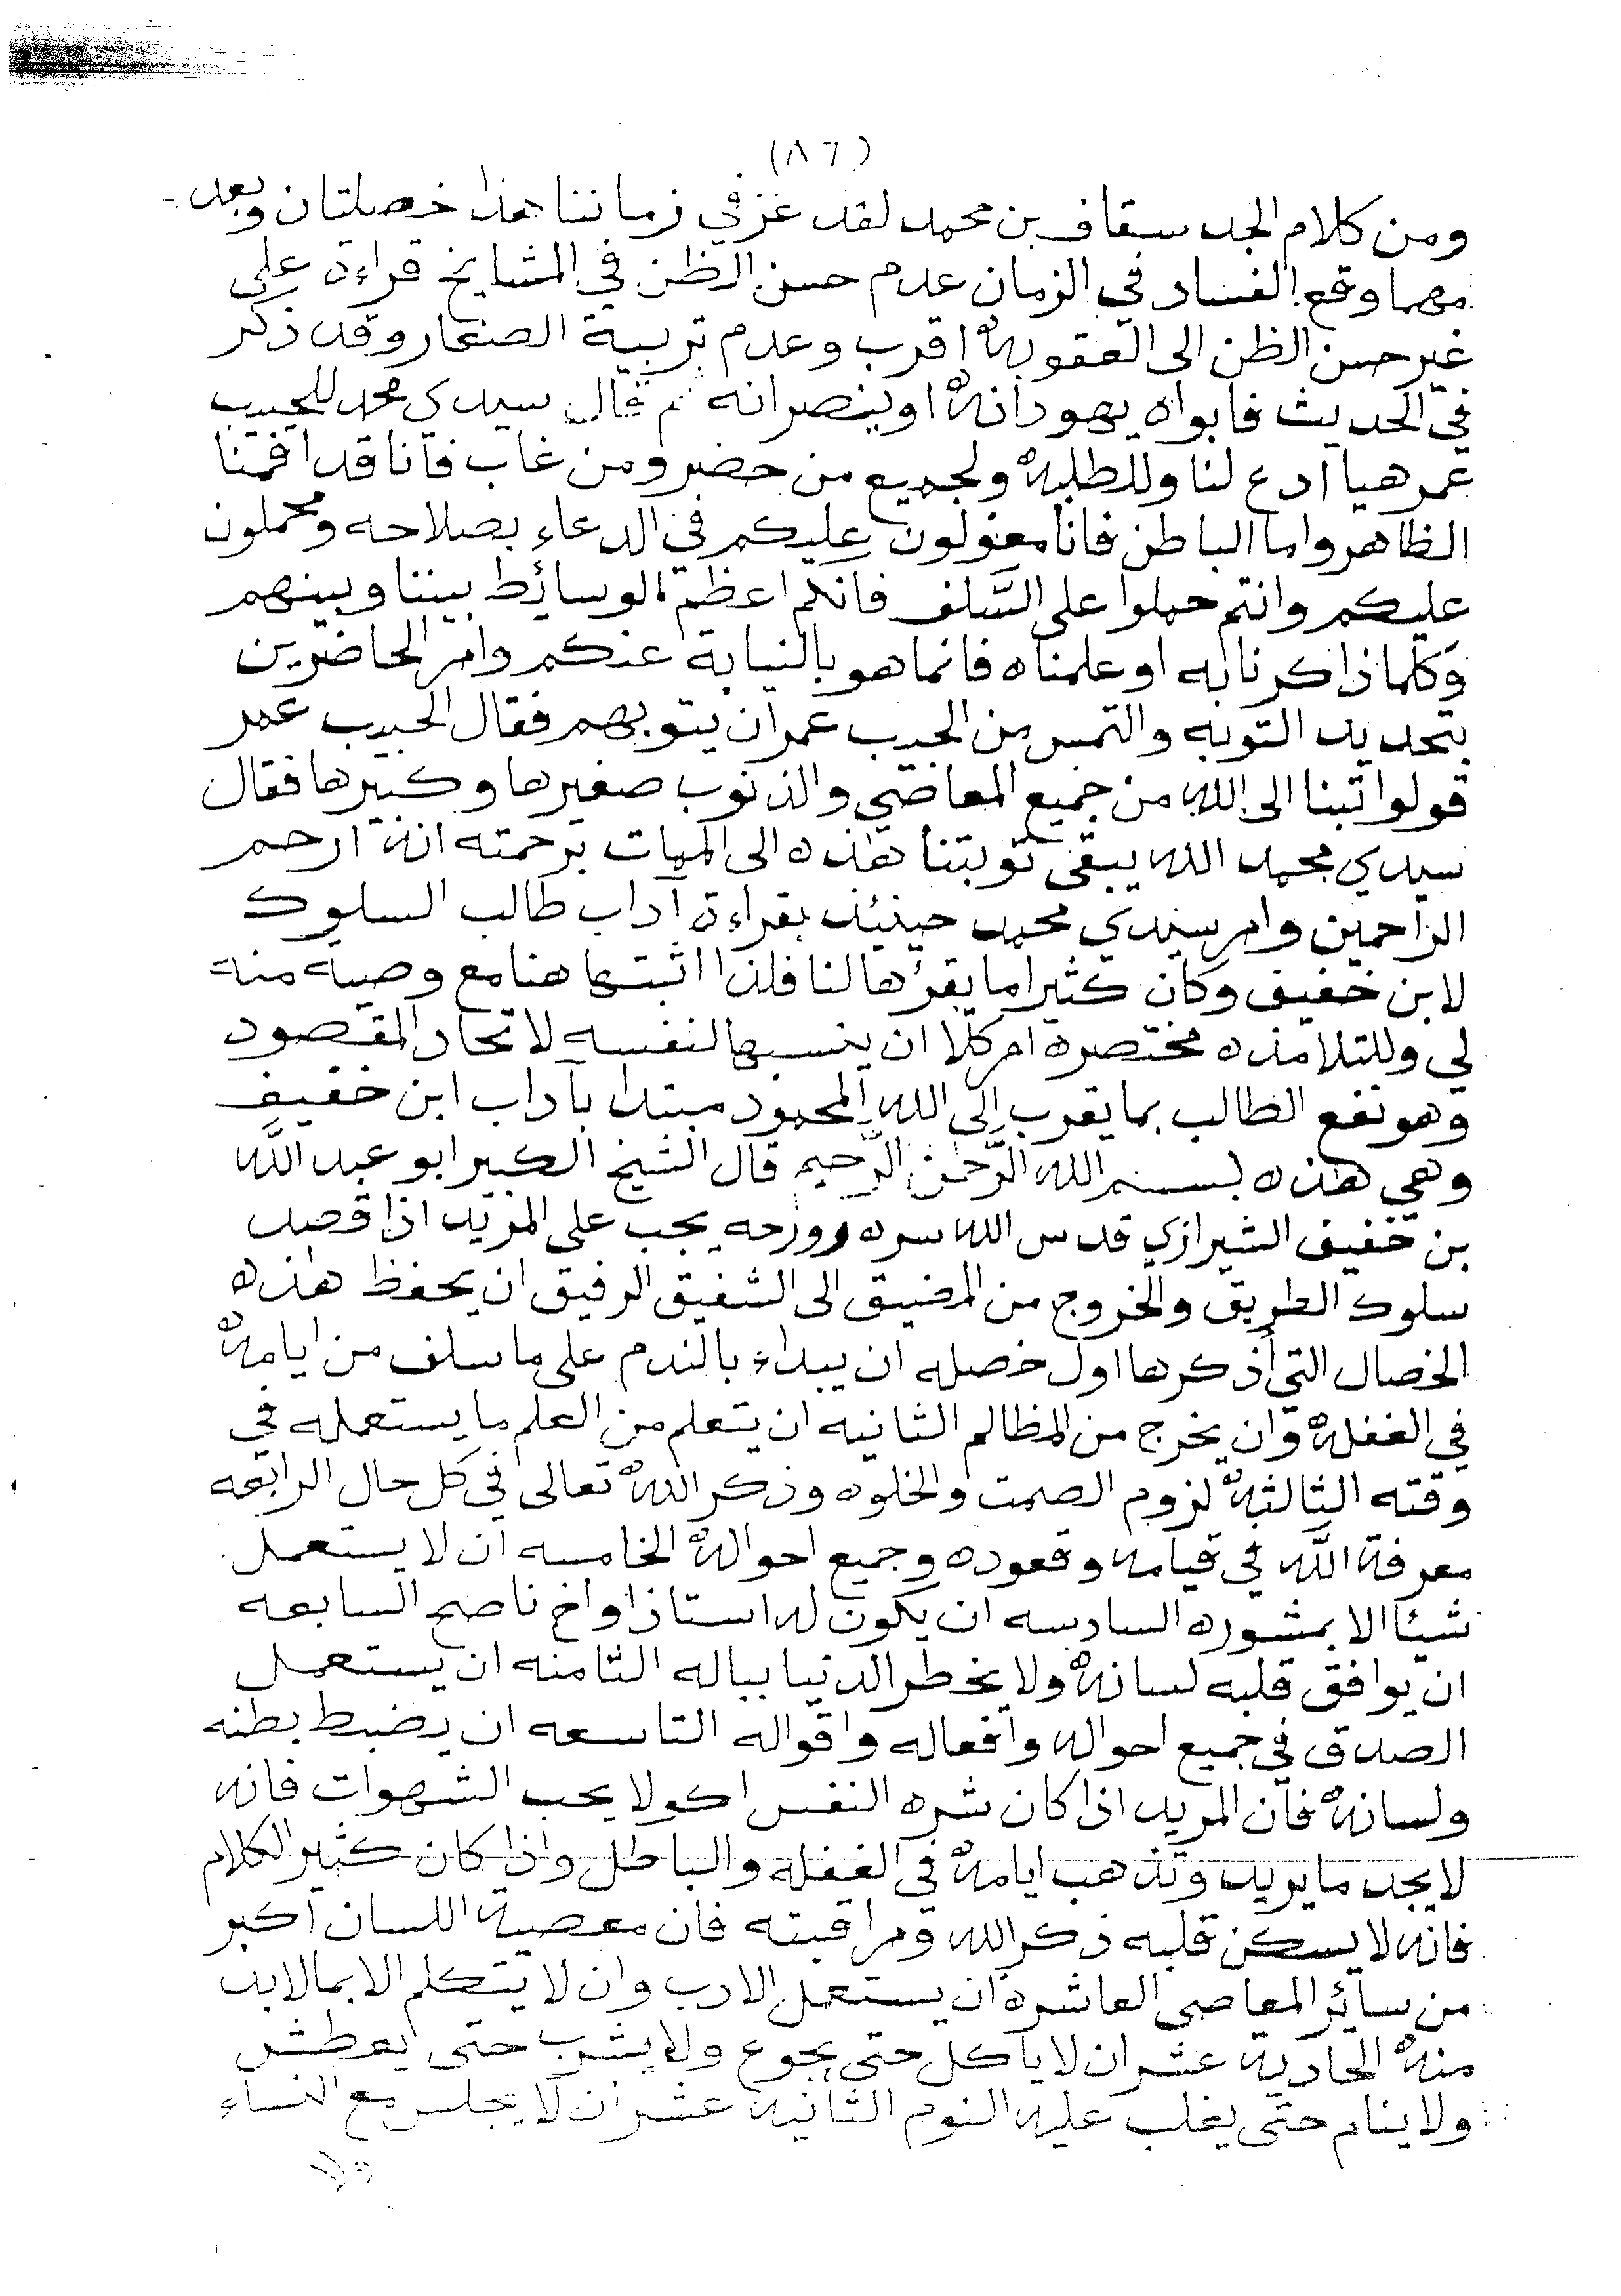 (٨٦)
ومن كلام الجد سقاف بن محمد لقد عز في زماننا هذا خصلتان وبعد
مهما وقع الفساد في الزمان عدم حسن الظن في المشايخ قراءة على
غير حسن الظن الى العقوبه اقرب وعدم تربية الصغار وقد ذكر
في الحديث فابواه يهودانه او ينصرانه ثم قال سيدي محمد للحبيب
عمر هيا ادع لنا وللطلبه ولجميع من حضر ومن غاب فانا قد اقمنا
الظاهر واما الباطن فانا معولون عليكم في الدعاء بصلاحه ومحملون
عليكم وانتم حملوا على السَّلف فانكم اعظم الوسائط بيننا وبينهم
وكلما ذاكرنا به او علمناه فانما هو بالنيابة عنكم وامر الحاضرين
بتجديد التوبه والتمس من الحبيب عمر ان يتوبهم فقال الحبيب عمر
قولوا تبنا الى الله من جميع المعاصي والذنوب صغيرها وكبيرها فقال
سيدي محمد الله يبقي توبتنا هذه الى الممات برحمته انه ارحم
الراحمين وامر سيدي محمد حينئذ بقراءة آداب طالب السلوك
لابن خفيف وكان كثيرا ما يقرؤها لنا فلذا اثبتها هنا مع وصية منه
لي وللتلامذه مختصره امر كلا ان ينسبها لنفسه لاتحاد المقصود
وهو نفع الطالب بما يقرب إلى الله المحمود مبتدا بآداب ابن خفيف
وهي هذه بسم الله الرَّحمن الرَّحيم قال الشيخ الكبير ابو عبد اللَّه
بن خفيف الشيرازي قدس الله سره وروحه يجب على المريد اذا قصد
سلوك الطريق والخروج من المضيق الى الشفيق الرفيق ان يحفظ هذه
الخصال التي أذكرها اول خصله ان يبداء بالندم على ما سلف من ايامه
في الغفله وان يخرج من المظالم الثانيه ان يتعلم من العلم ما يستعمله في
وقته الثالثه لزوم الصمت والخلوه وذكر الله تعالى في كل حال الرابعه
معرفة اللَّه في قيامه وقعوده وجميع احواله الخامسه ان لا يستعمل
شيئا الا بمشوره السادسه ان يكون له استاذ او اخ ناصح السابعه
ان يوافق قلبه لسانه ولا يخطر الدنيا بباله الثامنه ان يستعمل
الصدق في جميع احواله وافعاله واقواله التاسعه ان يضبط بطنه
ولسانه فان المريد اذا كان شره النفس اكولا يحب الشهوات فانه
لا يجد ما يريد وتذهب ايامه في الغفله والباطل واذا كان كثير الكلام
فانه لا يسكن قلبه ذكر الله ومراقبته فان معصية اللسان اكبر
من سائر المعاصي العاشره ان يستعمل الادب وان لا يتكلم الا بما لا بد
منه الحادية عشر ان لا ياكل حتى يجوع ولا يشرب حتى يعطش
ولا ينام حتى يغلب عليه النوم الثانية عشر ان لا يجلس مع النساء